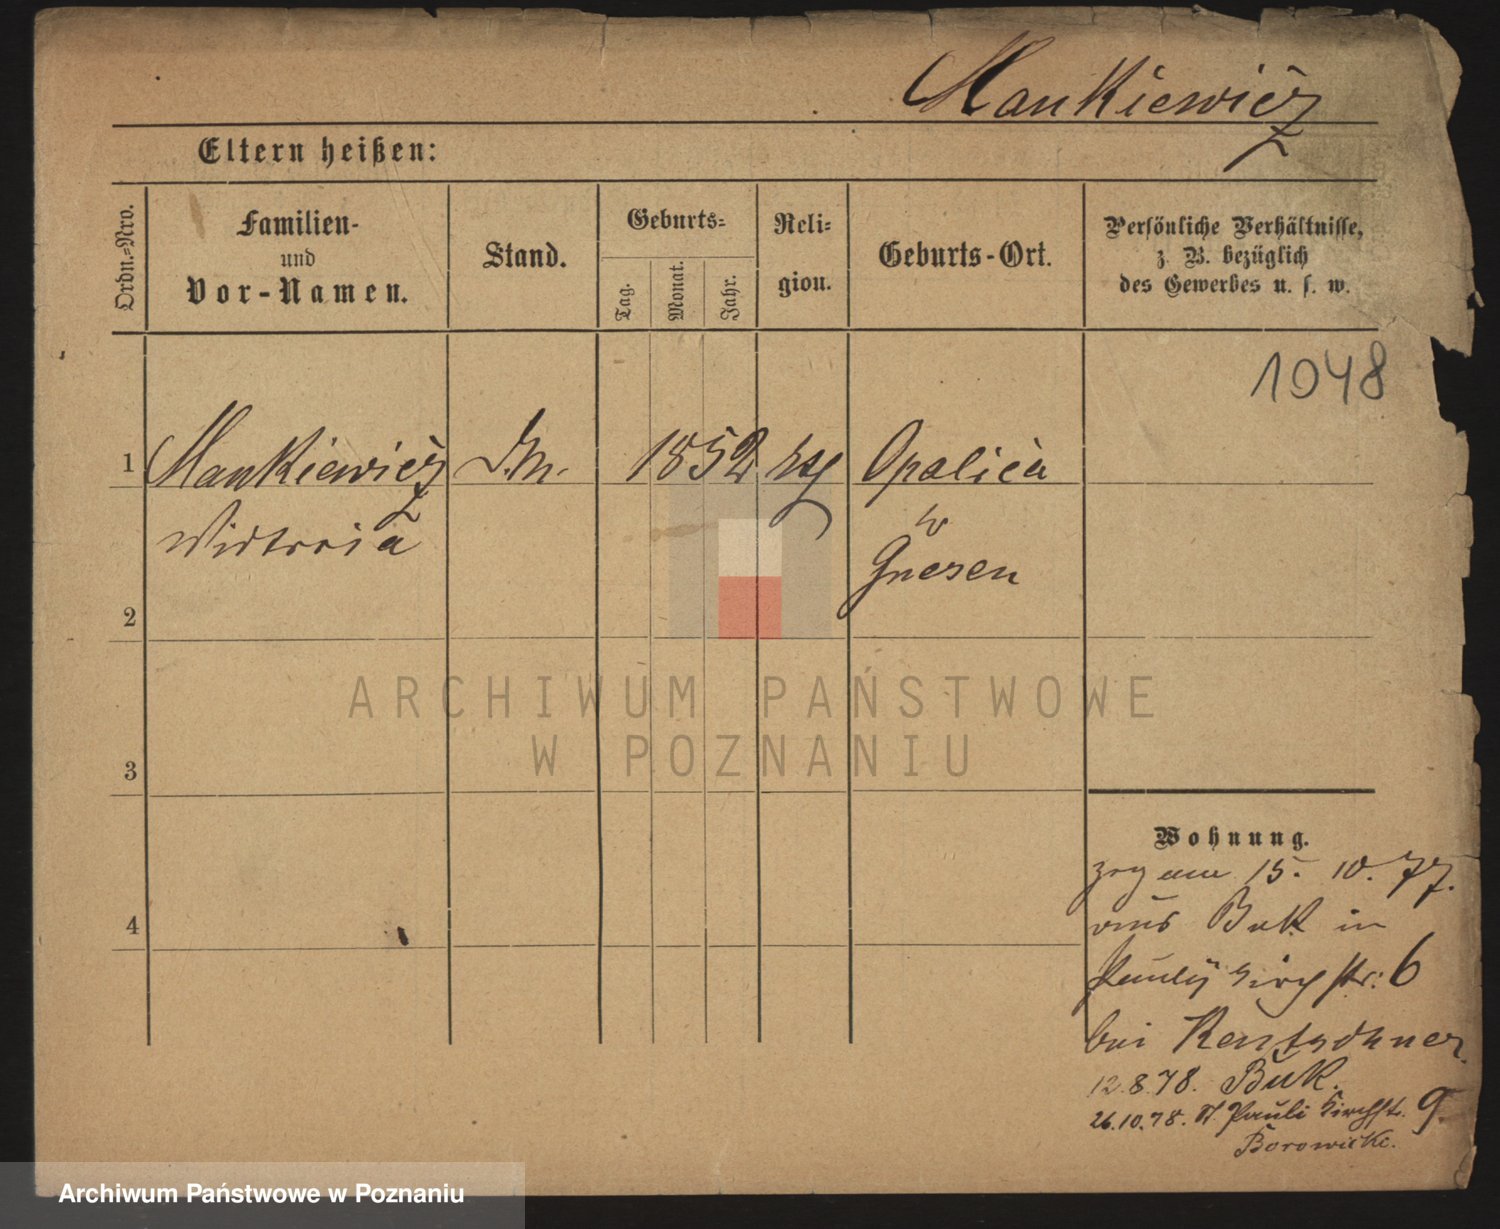 Mankiewicz
Eltern heißen:
Ordn.-Nro.
Familien-
und
Vor-Namen.
Stand.
Geburts-
Tag.
Monat.
Jahr.
Reli-
gion.
Geburts-Ort.
Persönliche Verhältnisse,
z. B. bezüglich
des Gewerbes u. s. w.
1048
1 Mankiewicz 1852 Opalica
Gnesen
2
3
4
Wohnung.
zog am 15. 10. 77.
aus Buk in
Pauly Kirch str: 6
bei
12.8.78. Buk.
26.10.78. St. Pauli Kirchstr. 9.
ARCHIWUM PAŃSTWOWE
W POZNANIU
Archiwum Państwowe w Poznaniu